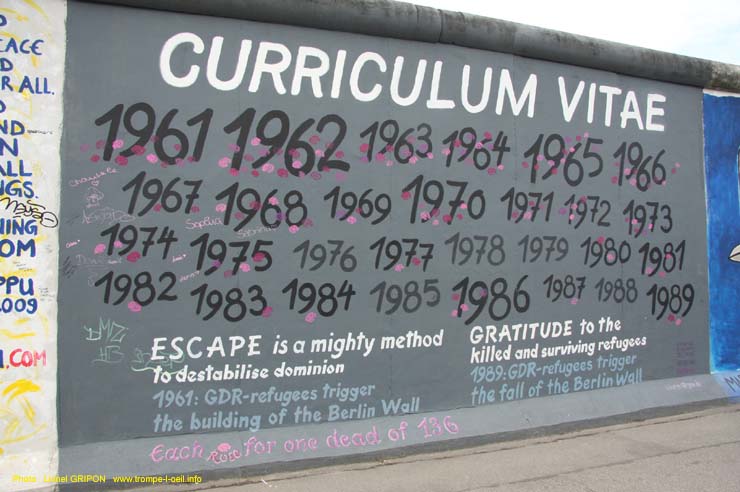 ACE
R ALL.
ND
N
ALL
NGS.
HING
OM
PPU
2009
.COM
CURRICULUM VITAE
1961 1962 1963 1964 1965 1966
1967 1968 1969 1970 1971 1972 1973
1974 1975 1976 1977 1978 1979 1980 1981
1982 1983 1984 1985 1986 1987 1988 1989
ESCAPE is a mighty method
to destabilise dominion
1961: GDR-refugees trigger
the building of the Berlin Wall
GRATITUDE to the
killed and surviving refugees
1989: GDR-refugees trigger
the fall of the Berlin Wall
Each Rose for one dead of 136
Photo : Lionel GRIPON www.trompe-l-oeil.info